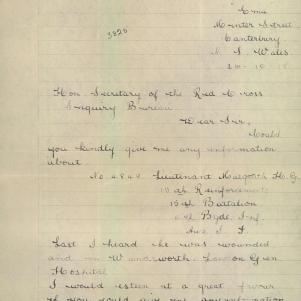 3825
"Elma
Minter Street
Canterbury
N. S. Wales
Hon. Secretary of the Red Cross
Inquiry Bureau
Dear Sir,
Could
you kindly give me any information
about
No 4848 Lieutenant H. G.
Reinforcements
Battalion
Aus. I. F
Last I heard he was wounded
and in Wandsworth. London Gen
Hospital
I would esteem at a great favour
if you could give me